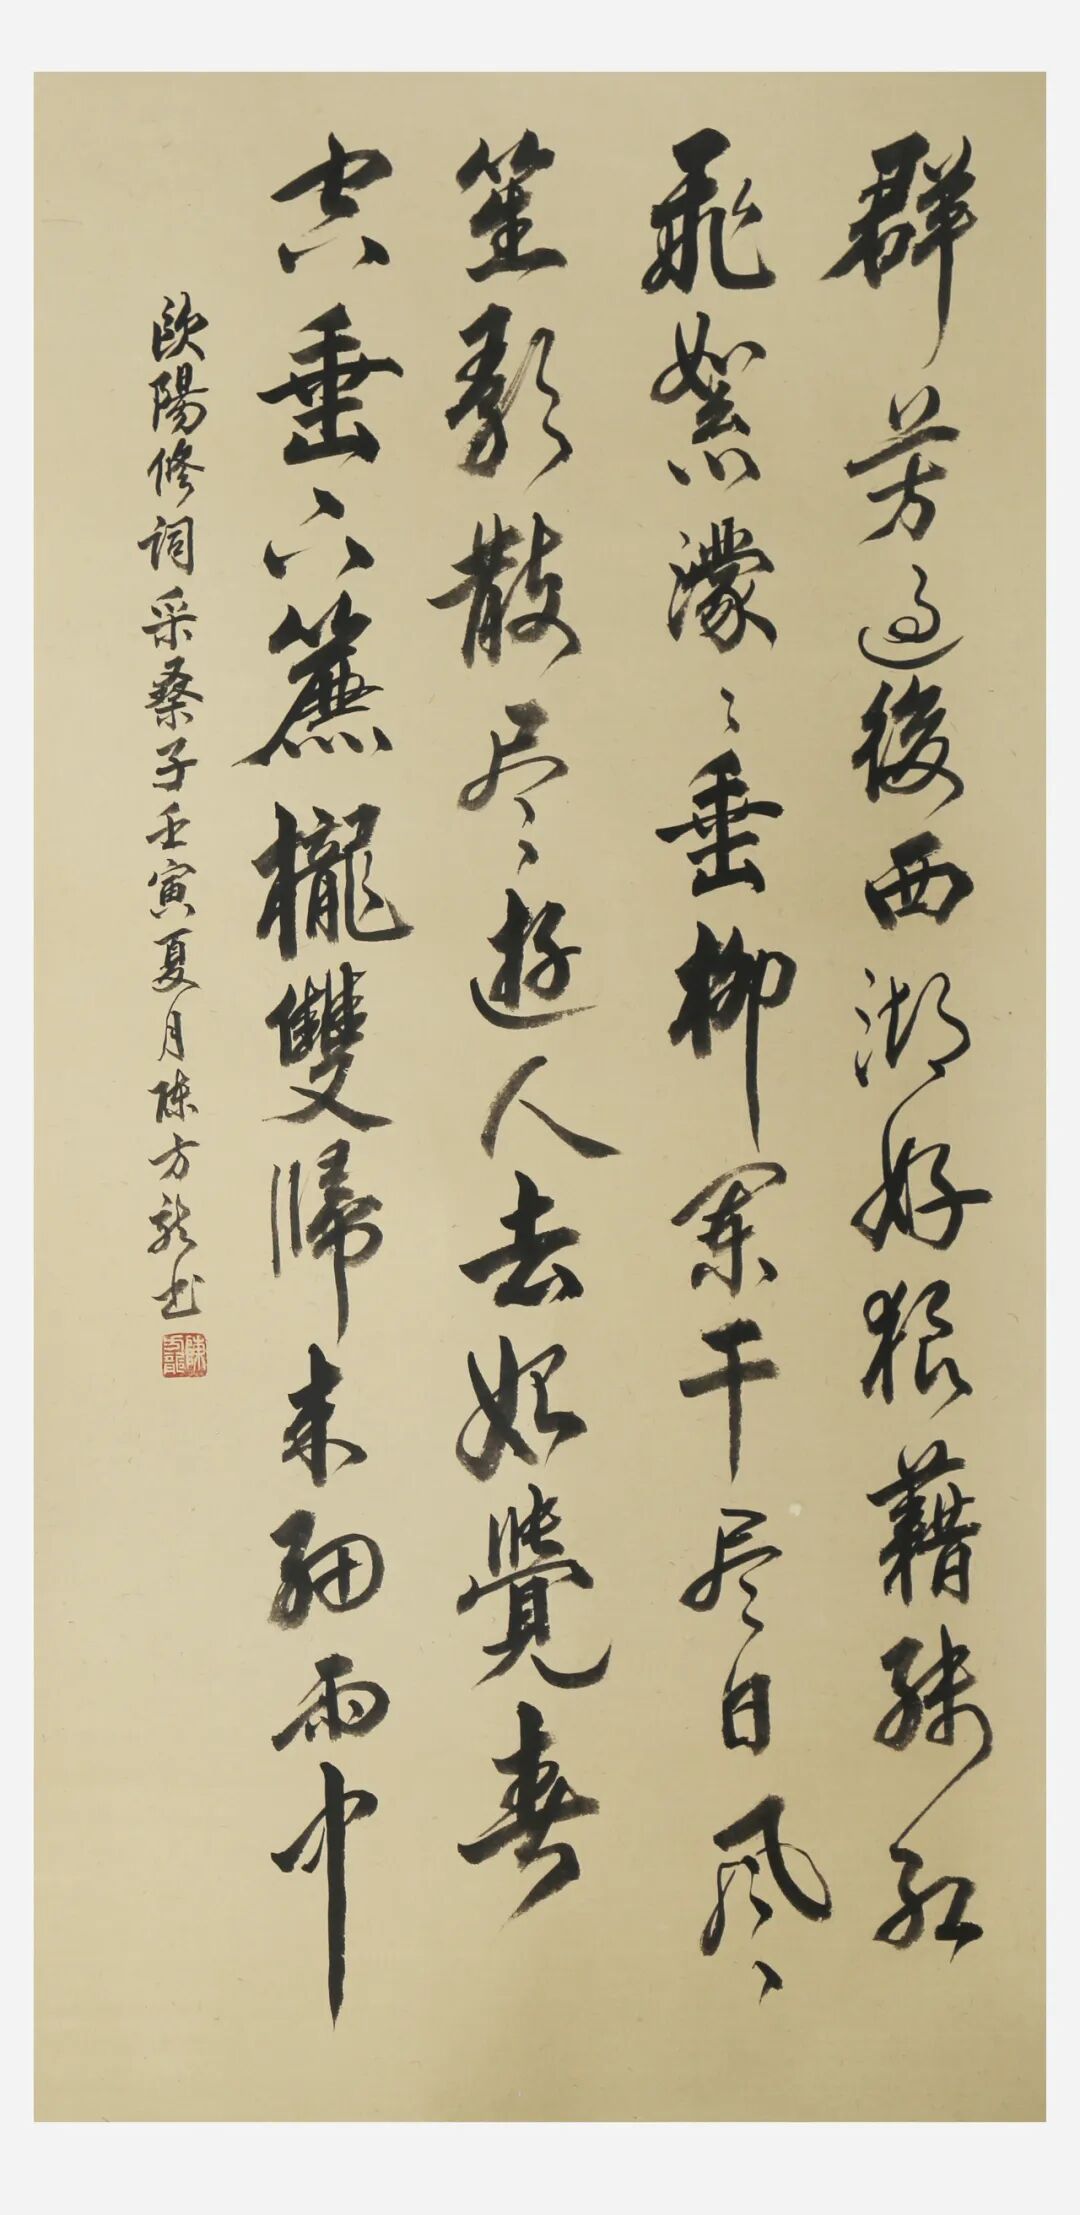 群芳過後西湖好狼藉殘紅
飛絮濛々垂柳闌干尽日風
笙歌散尽遊人去始覺春
空垂下簾櫳雙歸來細雨中
歐陽修詞采桑子壬寅夏月陳方龍书
陳方龍